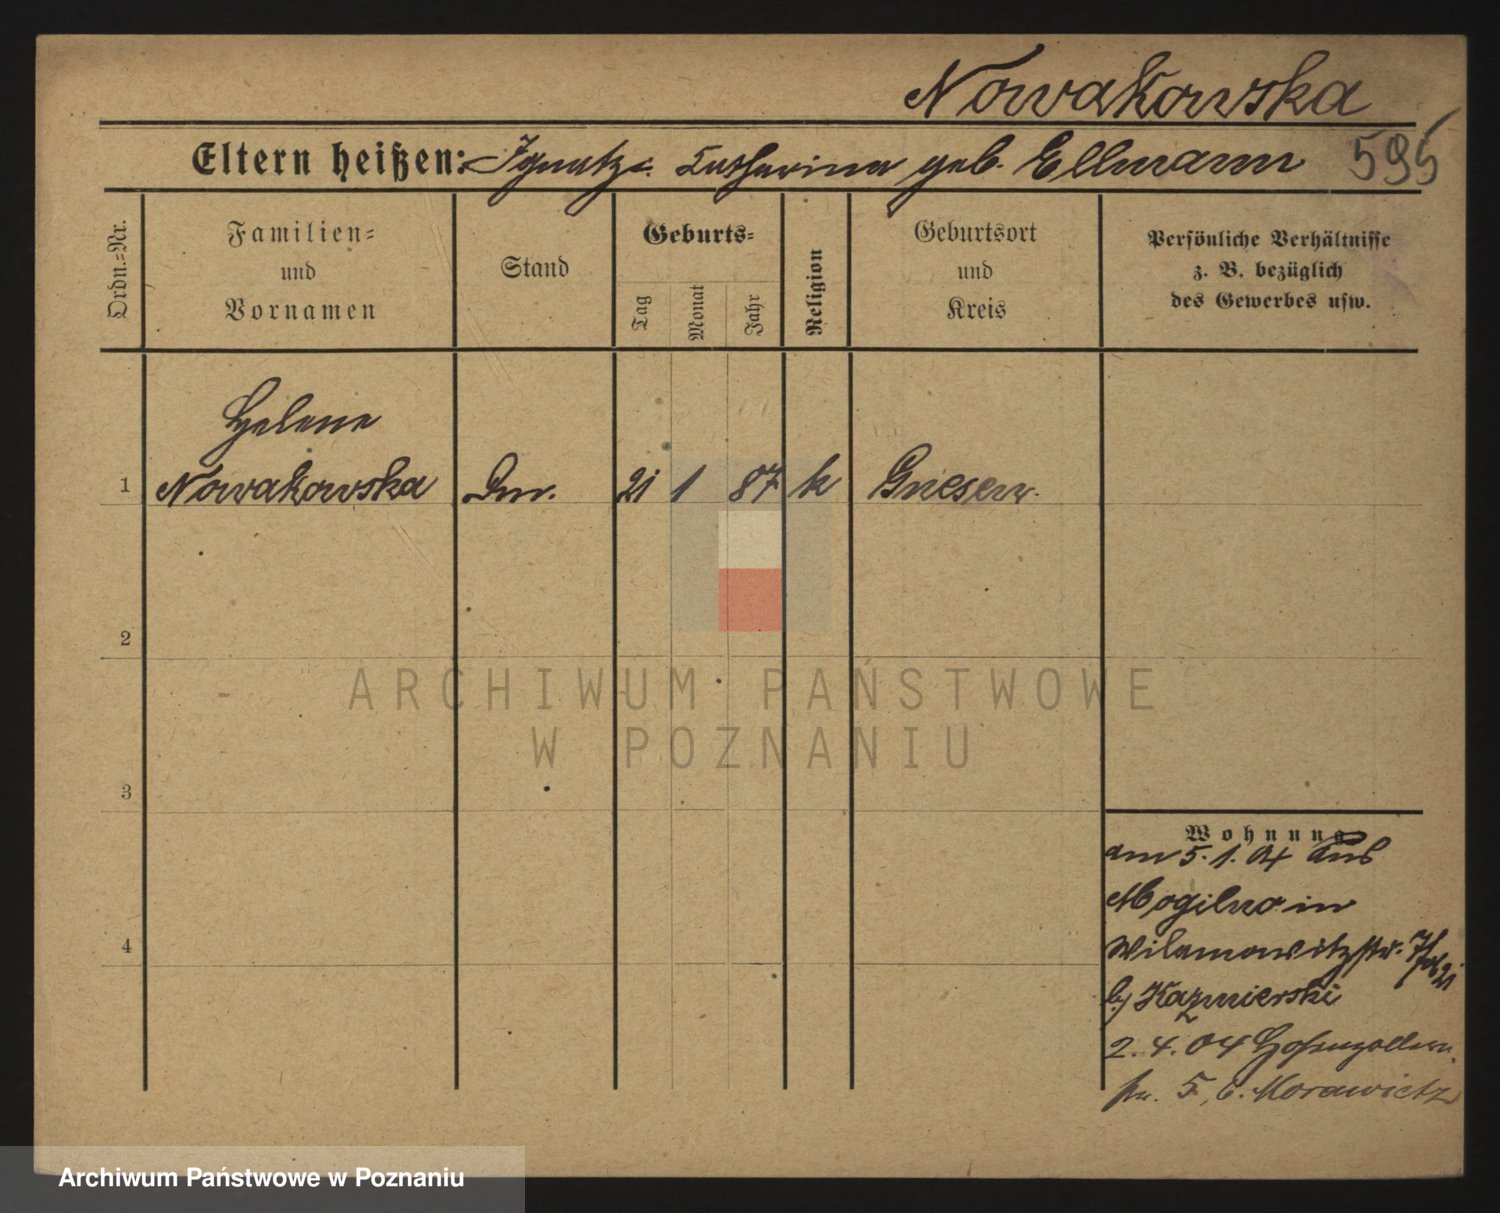 Nowakowska
595
Eltern heißen: Ignatz u. Katharina geb. Ellmann
Ordn.-Nr.
Familien-
und
Vornamen
Stand
Geburts-
Tag
Monat
Jahr
Religion
Geburtsort
und
Kreis
Persönliche Verhältnisse
z. B. bezüglich
des Gewerbes usw.
Helene
1 Nowakowska 21 1 87 k Gnesen
2
3
4
Wohnung
am 5.1.04 aus
Mogilno in
Wilamowitzstr.
b/ Kazmierski
2.4.04 Hohenzollern
str. 5, b. Morawietz
ARCHIWUM PAŃSTWOWE
W POZNANIU
Archiwum Państwowe w Poznaniu